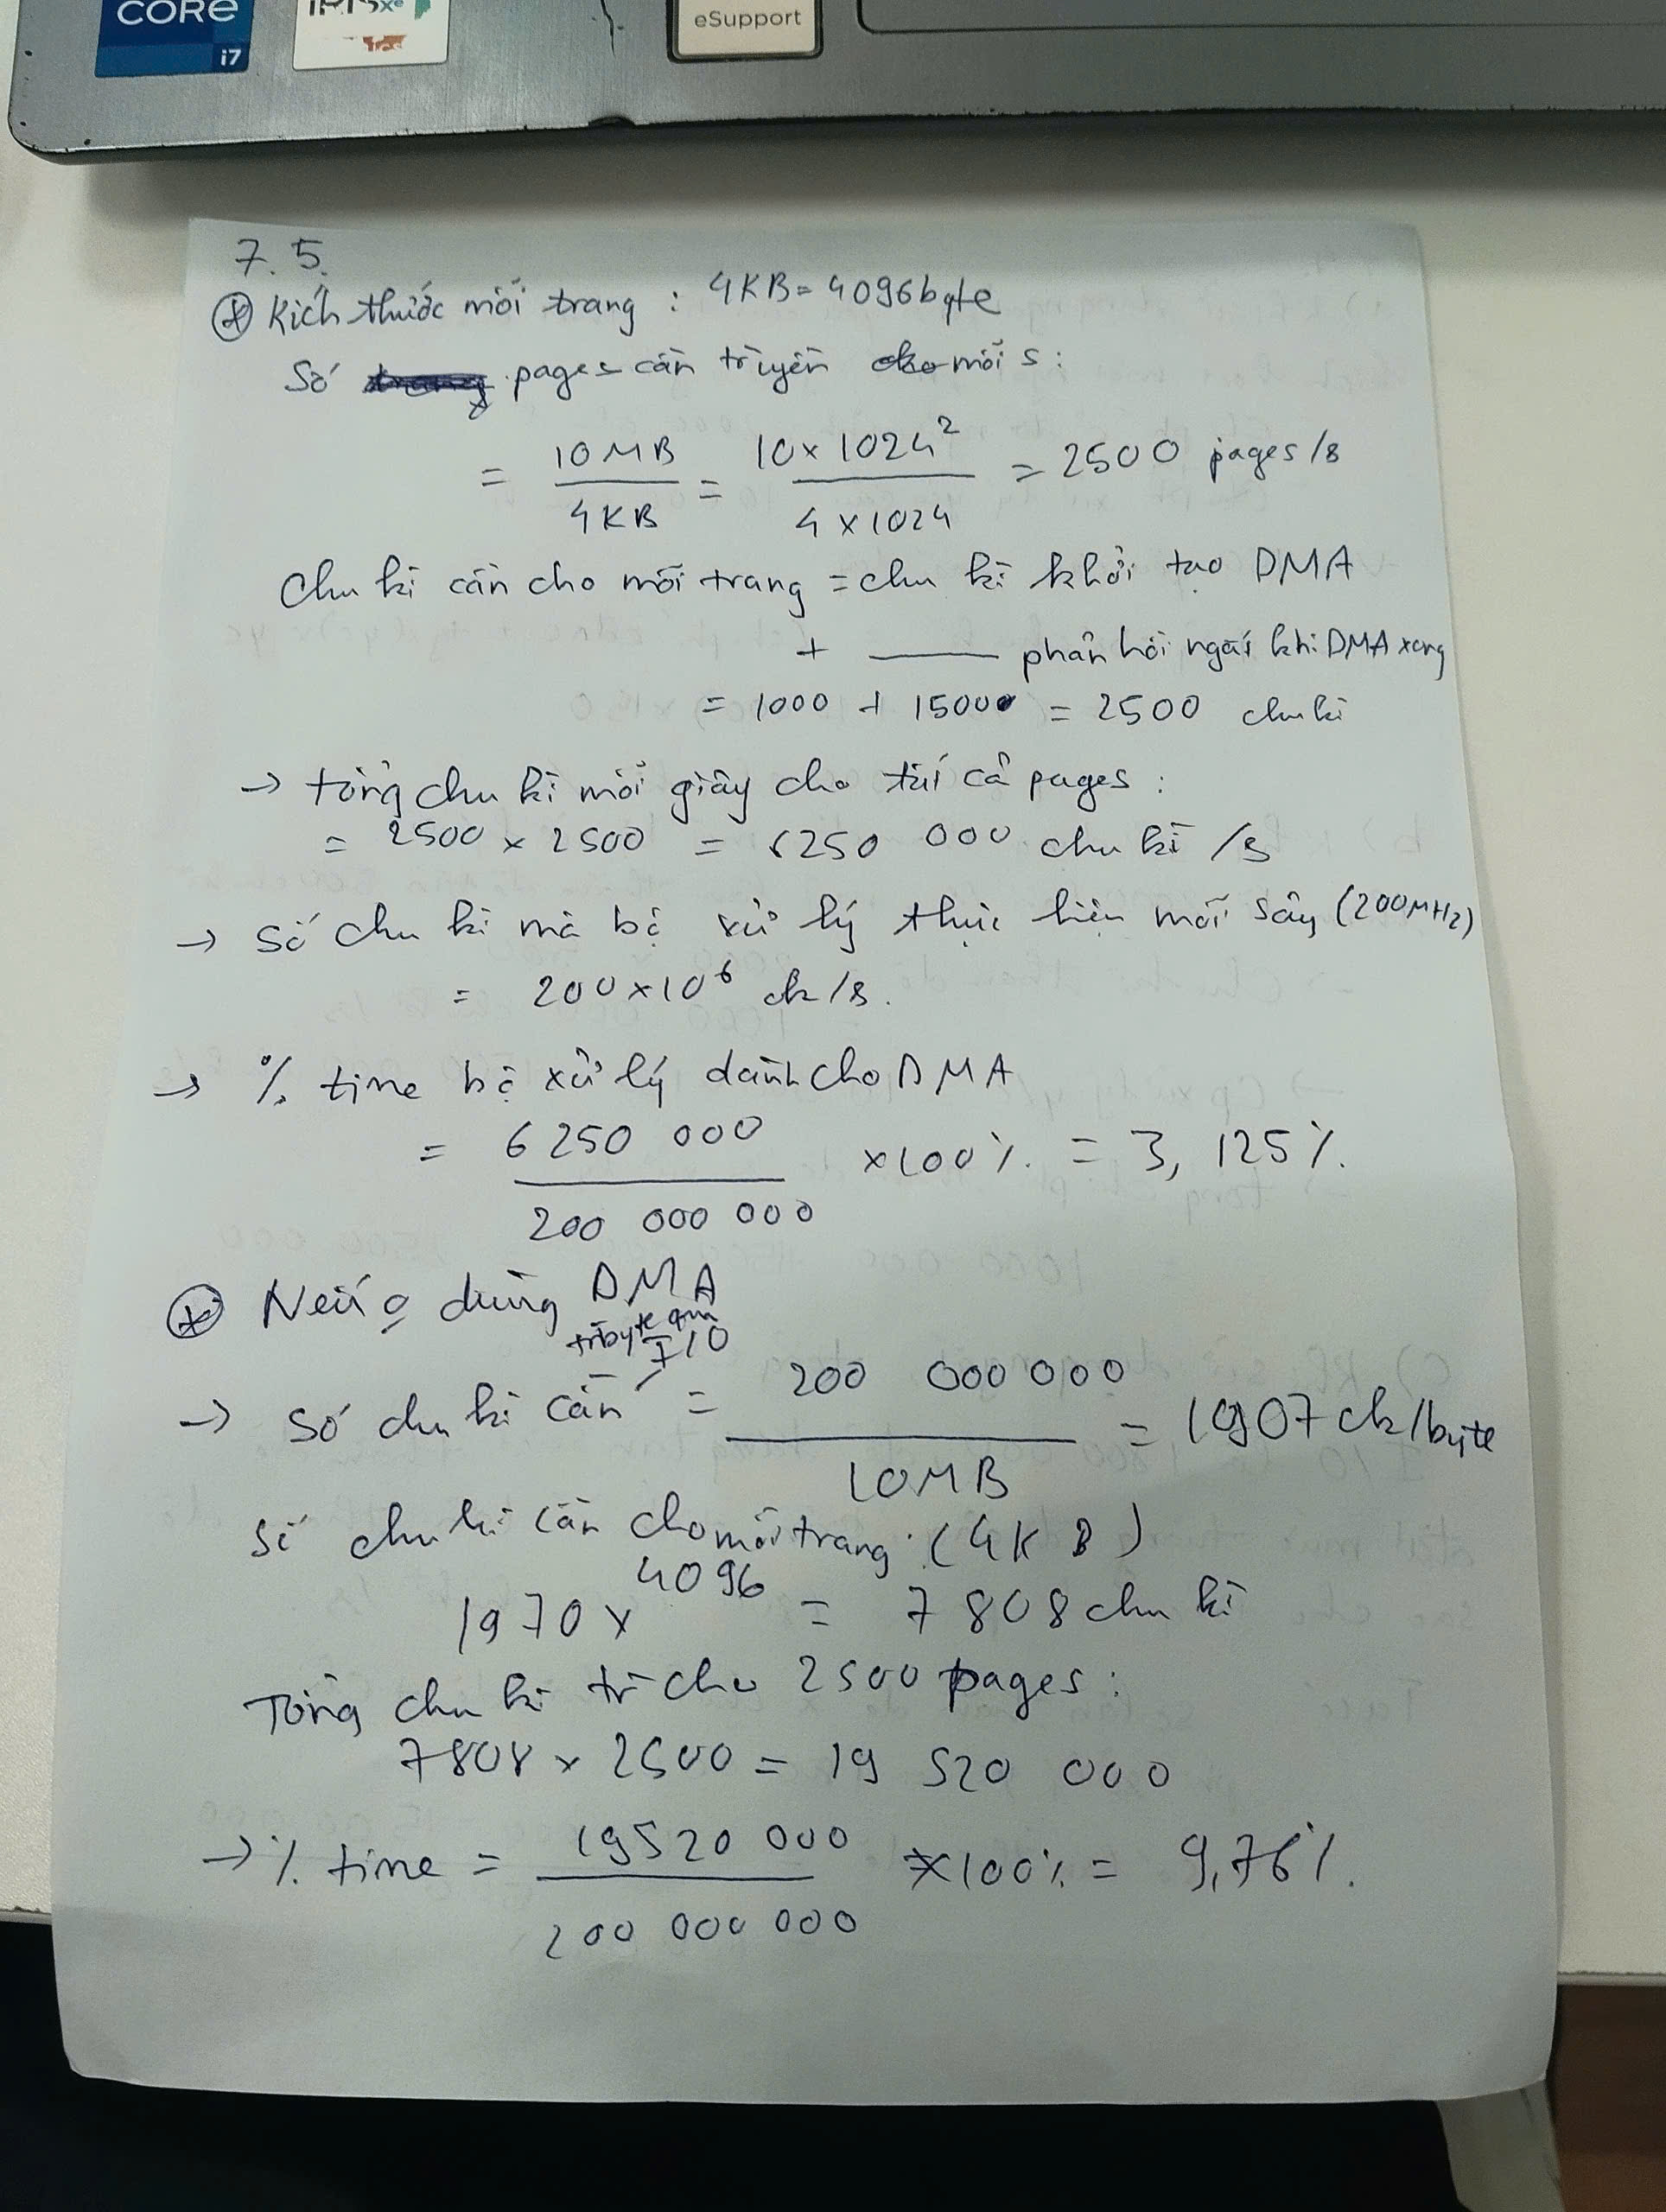 CORE
i7
eSupport
7.5.
* Kích thước mỗi trang : 4KB = 4096 byte
Số pages cần truyền cho mỗi s :
= 10 MB / 4 KB = 10 x 1024² / 4 x 1024 = 2500 pages/s
Chu kì cần cho mỗi trang = chu kì khởi tạo DMA
+ —— phản hồi ngắt khi DMA xong
= 1000 + 1500 = 2500 chu kì
→ tổng chu kì mỗi giây cho tất cả pages :
= 2500 x 2500 = 6250 000 chu kì /s
→ Số chu kì mà bộ xử lý thực hiện mỗi sây (200MHz)
= 200 x 10⁶ ck/s.
→ % time bộ xử lý dành cho DMA
= 6 250 000 / 200 000 000 x 100% = 3,125%.
* Nếu o dùng DMA
byte qua I/O
→ Số chu kì cần = 200 000 000 / 10 MB = 1907 ck/byte
Số chu kì cần cho mỗi trang : (4K B)
1970 x 4096 = 7 808 chu kì
Tổng chu kì tr cho 2500 pages :
7808 x 2500 = 19 520 000
→ % time = 19520 000 / 200 000 000 x 100% = 9,76%.